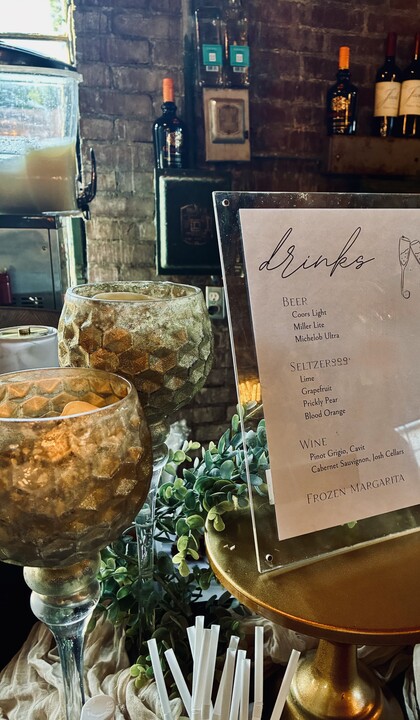 drinks
BEER
Coors Light
Miller Lite
Michelob Ultra
SELTZER999*
Lime
Grapefruit
Prickly Pear
Blood Orange
WINE
Pinot Grigio, Cavit
Cabernet Sauvignon, Josh Cellars
FROZEN MARGARITA